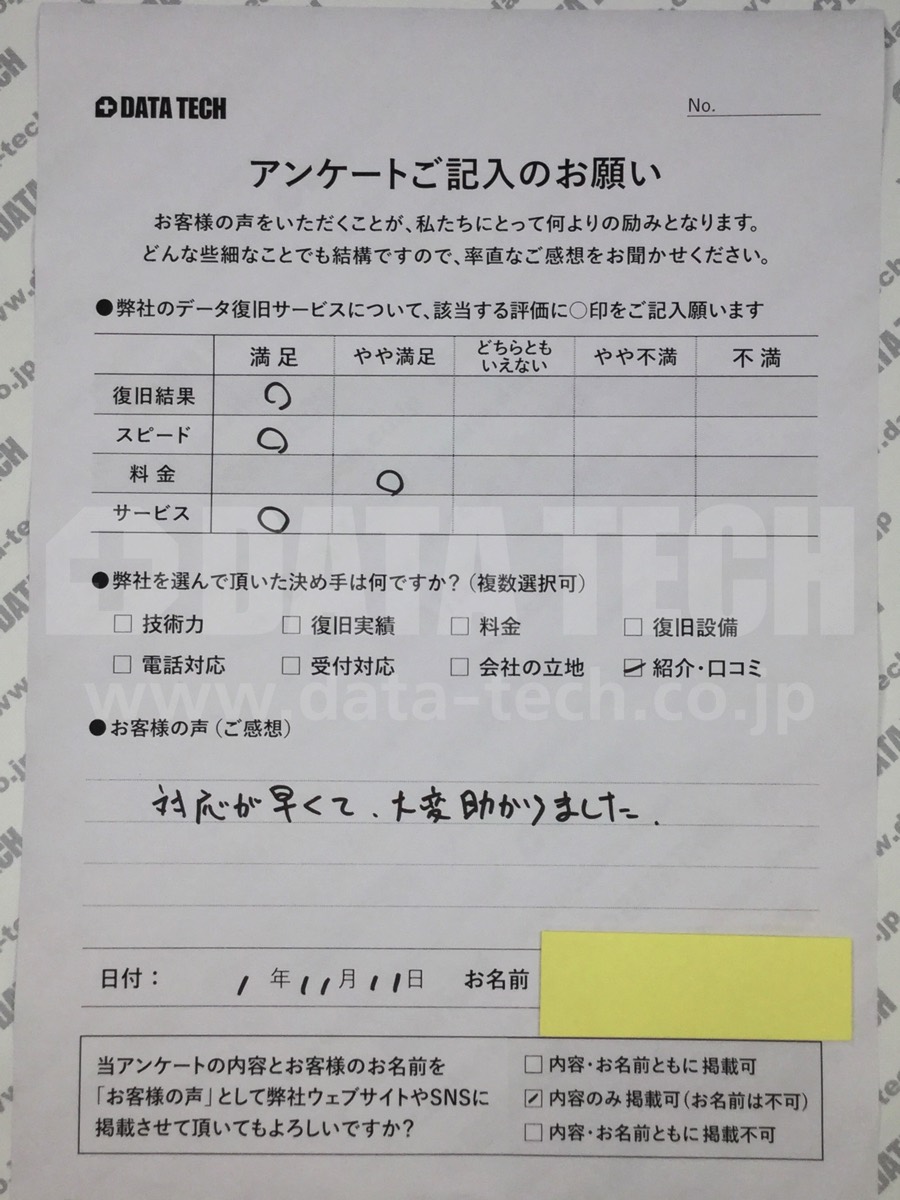 DATA TECH
No.
アンケートご記入のお願い
お客様の声をいただくことが、私たちにとって何よりの励みとなります。
どんな些細なことでも結構ですので、率直なご感想をお聞かせください。
●弊社のデータ復旧サービスについて、該当する評価に○印をご記入願います
満足 やや満足 どちらとも いえない やや不満 不満
復旧結果 ○
スピード ○
料金 ○
サービス ○
●弊社を選んで頂いた決め手は何ですか？（複数選択可）
□ 技術力 □ 復旧実績 □ 料金 □ 復旧設備
□ 電話対応 □ 受付対応 □ 会社の立地 ☑ 紹介・口コミ
DATA TECH
www.data-tech.co.jp
●お客様の声（ご感想）
対応が早くて、大変助かりました。
日付： 1年11月11日 お名前
当アンケートの内容とお客様のお名前を
「お客様の声」として弊社ウェブサイトやSNSに
掲載させて頂いてもよろしいですか？
□ 内容・お名前ともに掲載可
☑ 内容のみ掲載可（お名前は不可）
□ 内容・お名前ともに掲載不可